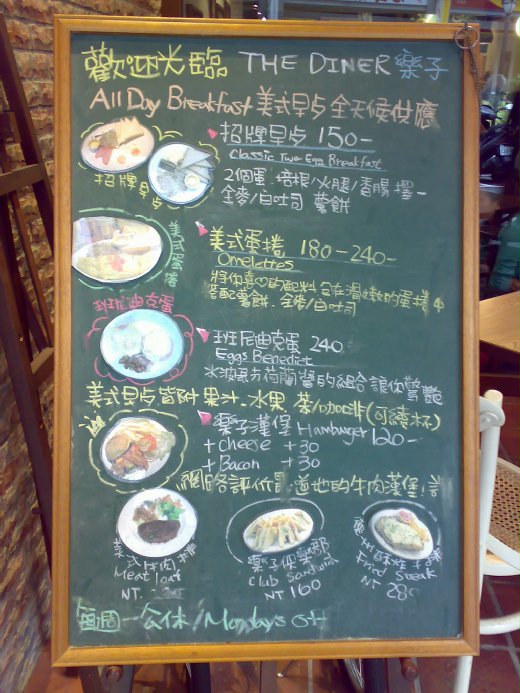 歡迎光臨 THE DINER 樂子
All Day Breakfast 美式早点 全天候供應
招牌早点 150-
Classic Two Egg Breakfast
2個蛋.培根/火腿/香腸 擇一
全麥/白吐司 薯餅
招牌早点
美式蛋捲 180-240-
Omelettes
將你喜♡的配料 包在滑嫩的蛋捲中
搭配薯餅.全麥/白吐司
美式蛋捲
班尼迪克蛋
班尼迪克蛋 240
Eggs Benedict
水波蛋加荷蘭醬的組合 讓你驚艷
美式早点皆附 果汁.水果.茶/咖啡(可續杯)
樂子漢堡 Hamburger 120-
+ Cheese +30
+ Bacon +30
網路評價最道地的牛肉漢堡!
美式牛肉
Meat loaf
NT.
樂子俱樂部
Club Sandwich
NT 160
Fried Steak
NT 280
每週一公休/Mondays off